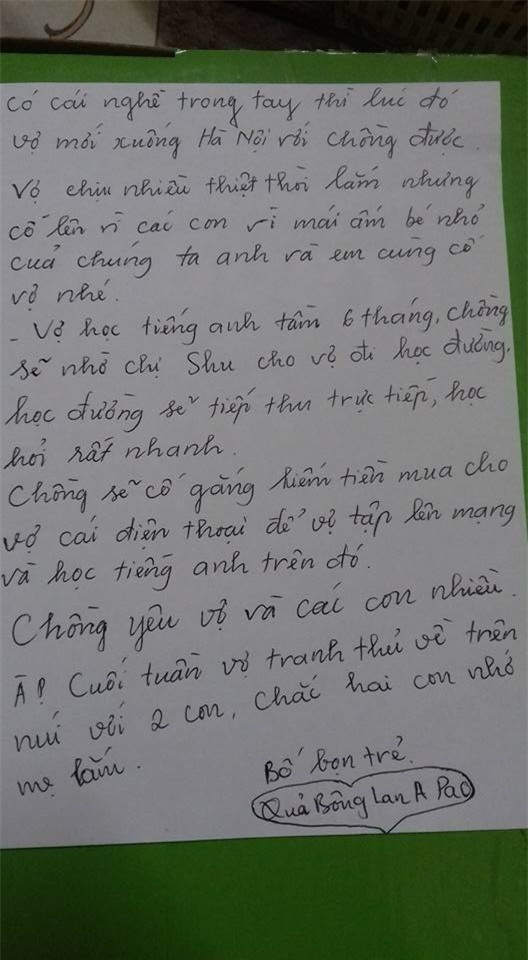 có cái nghề trong tay thì lúc đó
vợ mới xuống Hà Nội với chồng được.
Vợ chịu nhiều thiệt thòi lắm nhưng
cố lên vì các con vì mái ấm bé nhỏ
của chúng ta anh và em cùng cố
vợ nhé.
- Vợ học tiếng anh tầm 6 tháng, chồng
sẽ nhờ chị Shu cho vợ đi học đường,
học đường sẽ tiếp thu trực tiếp, học
hỏi rất nhanh.
Chồng sẽ cố gắng kiếm tiền mua cho
vợ cái điện thoại để vợ tập lên mạng
và học tiếng anh trên đó.
Chồng yêu vợ và các con nhiều.
À! Cuối tuần vợ tranh thủ về trên
núi với 2 con, chắc hai con nhớ
mẹ lắm.
Bố bọn trẻ.
Quả Bông Lan A Pao